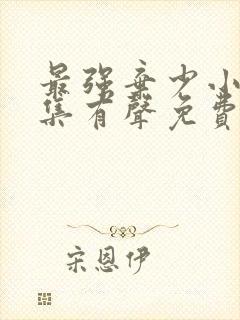 最强弃少小
集有聲免費
宋恩伊